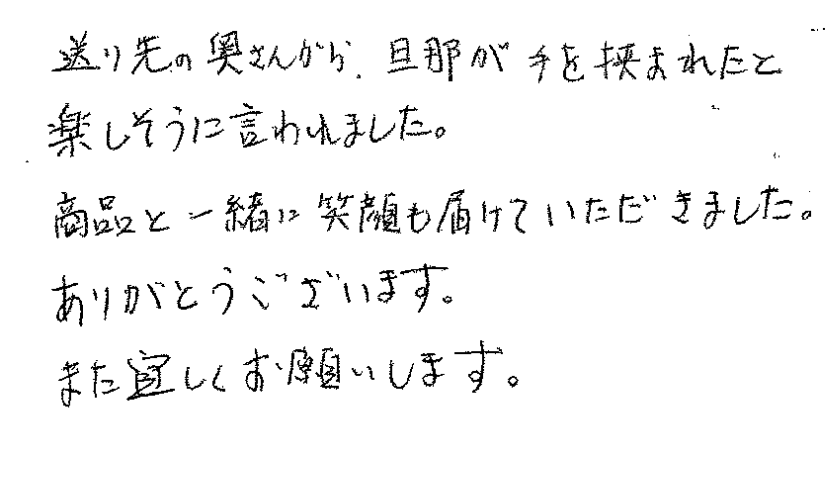 送り先の奥さんから、旦那が手を挟まれたと
楽しそうに言われました。
商品と一緒に笑顔も届けていただきました。
ありがとうございます。
また宜しくお願いします。